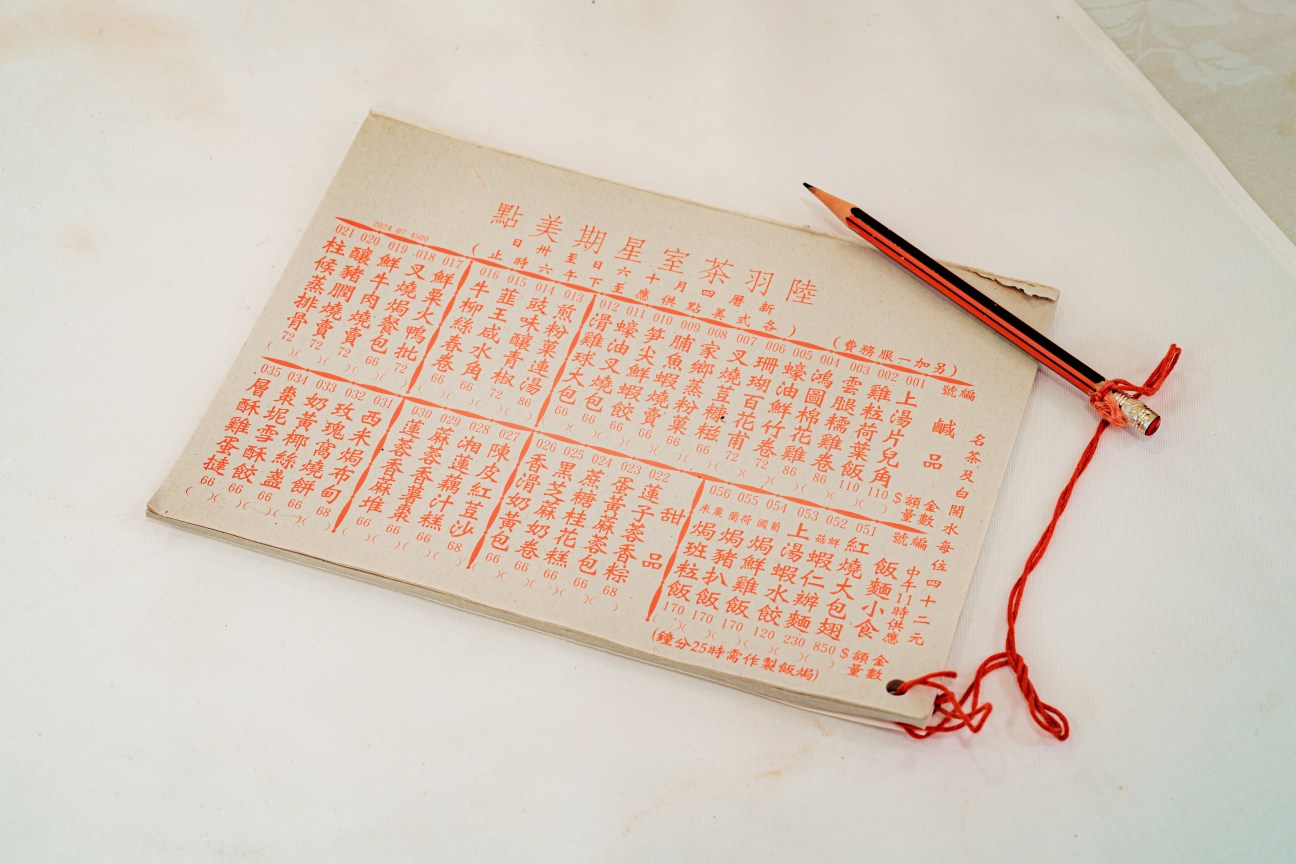 陸羽茶室星期美點
新曆四月十六日至卅日
(各式美點供應至下午六時止)
(另加一服務費)
2024 07
名茶及白開水每位四十二元
編號 鹹品 金額$ 數量
001 上湯片兒角 110 ( )
002 雞粒荷葉飯 110 ( )
003 雲腿糯雞卷 86 ( )
004 鴻圖棉花雞 86 ( )
005 蠔油鮮竹卷 72 ( )
006 珊瑚百花甫 72 ( )
007 叉燒豆糠糍 66 ( )
008 家鄉蒸粉果 66 ( )
009 脯魚蝦燒賣 66 ( )
010 筍尖鮮蝦餃 66 ( )
011 蠔油叉燒包 66 ( )
012 滑雞球大包 66 ( )
013 煎粉菓連湯 86 ( )
014 豉味釀青椒 72 ( )
015 韮王咸水角 66 ( )
016 牛柳絲春卷 66 ( )
017 鮮果火鴨批 72 ( )
018 叉燒焗餐包 66 ( )
019 鮮牛肉燒賣 72 ( )
020 釀豬膶燒賣 72 ( )
021 柱候蒸排骨 72 ( )
編號 飯麵小食 中午11時供應 金額$ 數量
051 紅燒大包翅 850 ( )
052 鮮菇蝦仁辦麵 230 ( )
053 上湯蝦水餃 120 ( )
054 葡國焗鮮雞飯 170 ( )
055 荷蘭焗豬扒飯 170 ( )
056 粟米焗班粒飯 170 ( )
(焗飯製作需時25分鐘)
甜品
022 蓮子蓉香粽 68 ( )
023 蛋黃麻蓉包 66 ( )
024 蔗糖桂花糕 66 ( )
025 黑芝蔴奶卷 66 ( )
026 香滑奶黃包 66 ( )
027 陳皮紅荳沙 68 ( )
028 湘蓮藕汁糕 66 ( )
029 麻蓉香薯棗 66 ( )
030 蓮蓉香蔴堆 66 ( )
031 西米焗布甸 68 ( )
032 玫瑰窩燒餅 66 ( )
033 奶黃椰絲盞 66 ( )
034 棗坭雪酥餃 66 ( )
035 層酥雞蛋撻 66 ( )